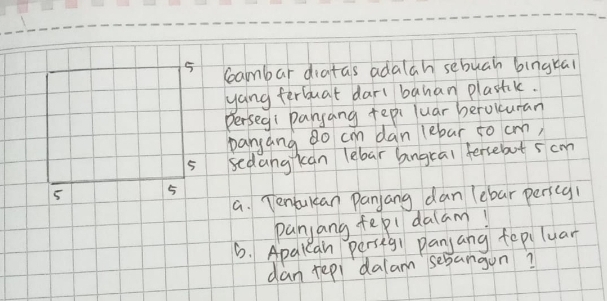 5
Gambar diatas adalah sebuah bingkai
yang terbuat dari bahan plastik.
Persegi panjang tepi luar berukuran
panjang 80 cm dan lebar 50 cm,
5 sedangkan lebar bingkai tersebut 5 cm
5 5
a. Tentukan panjang dan lebar persegi
panjang tepi dalam!
b. Apakah persegi panjang tepi luar
dan tepi dalam sebangun?